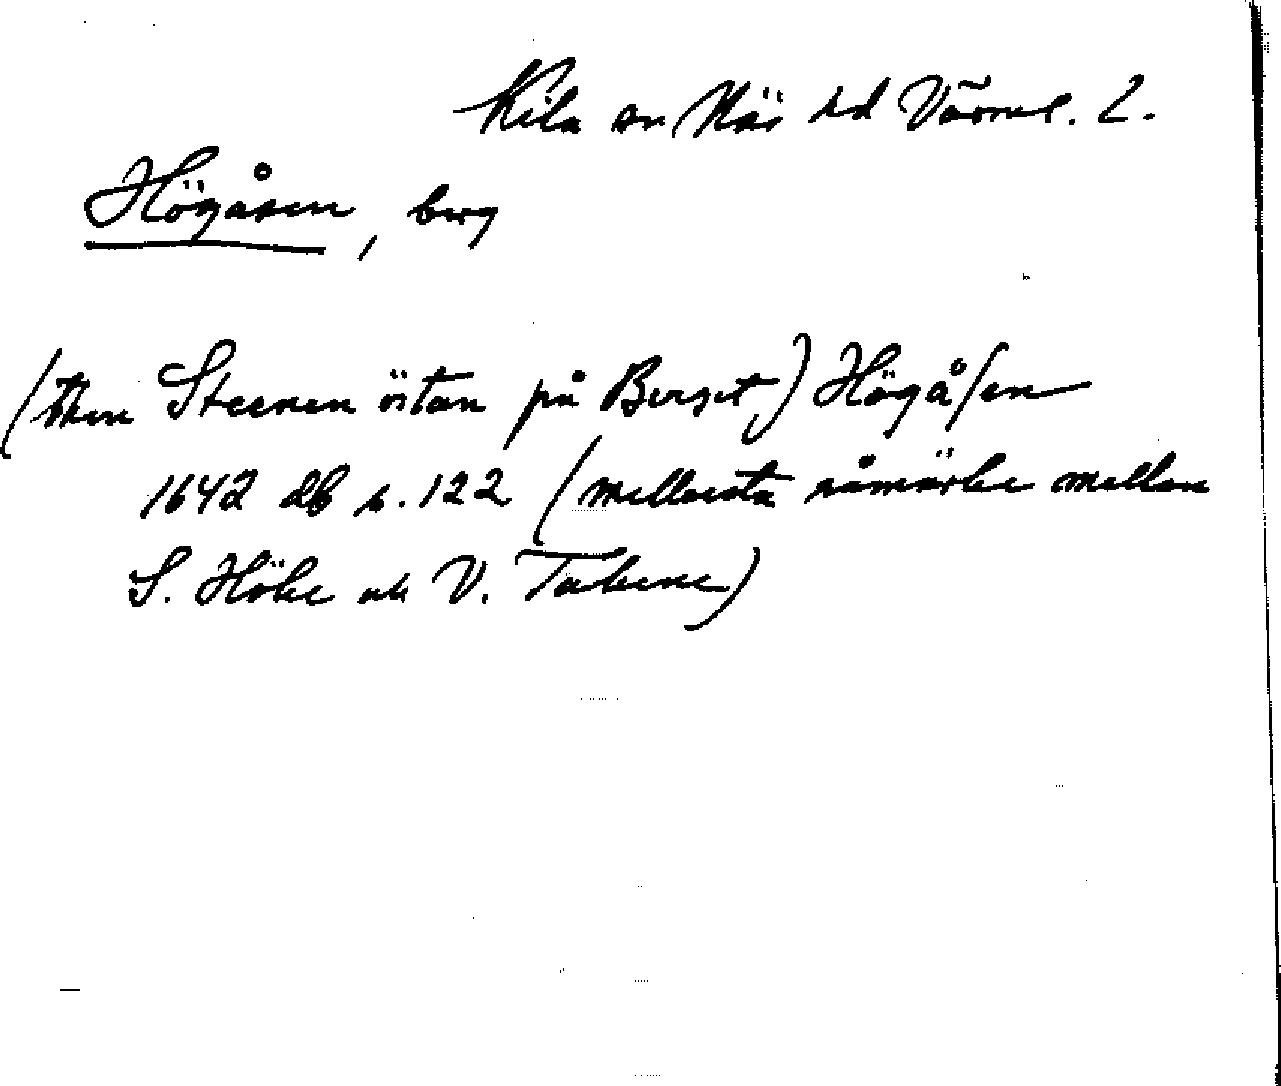 Kila sn Näs hd Värml. L.
Högåsen, berg
(then Steenen östan på Berget) Högåſen
1642 db s. 122 (mellersta råmärke mellan
S. Höke ok V. Takene)